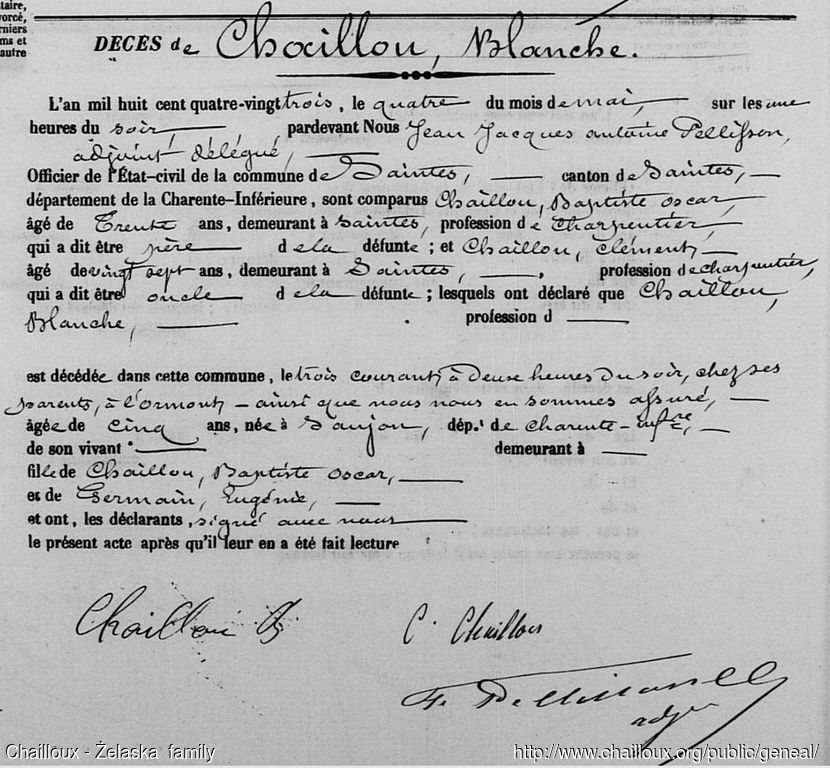 taire,
vorcé,
rniers
ms et
autre
DÉCÈS de Chaillou, Blanche.
L'an mil huit cent quatre-vingt trois, le quatre du mois de mai, sur les une
heures du soir, pardevant Nous Jean Jacques antoine Pellisson,
adjoint délégué,
Officier de l'État-civil de la commune de Saintes, canton de Saintes,
département de la Charente-Inférieure, sont comparus Chaillou, Baptiste Oscar,
âgé de Trente ans, demeurant à Saintes, profession de Charpentier,
qui a dit être père de la défunte ; et Chaillou, Clément,
âgé de vingt sept ans, demeurant à Saintes, profession de charpentier,
qui a dit être oncle de la défunte ; lesquels ont déclaré que Chaillou,
Blanche, profession d
est décédée dans cette commune, le trois courant, à deux heures du soir, chez ses
parents, à l'ormont, – ainsi que nous nous en sommes assuré,
âgée de cinq ans, née à Saujon, dép.t de charente-infre,
de son vivant demeurant à
fille de Chaillou, Baptiste Oscar,
et de Germain, Eugénie,
et ont, les déclarants, signé avec nous
le présent acte après qu'il leur en a été fait lecture
Chaillou B
C. Chaillou
Pellisson
adj
Chailloux - Żelaska family
http://www.chailloux.org/public/geneal/